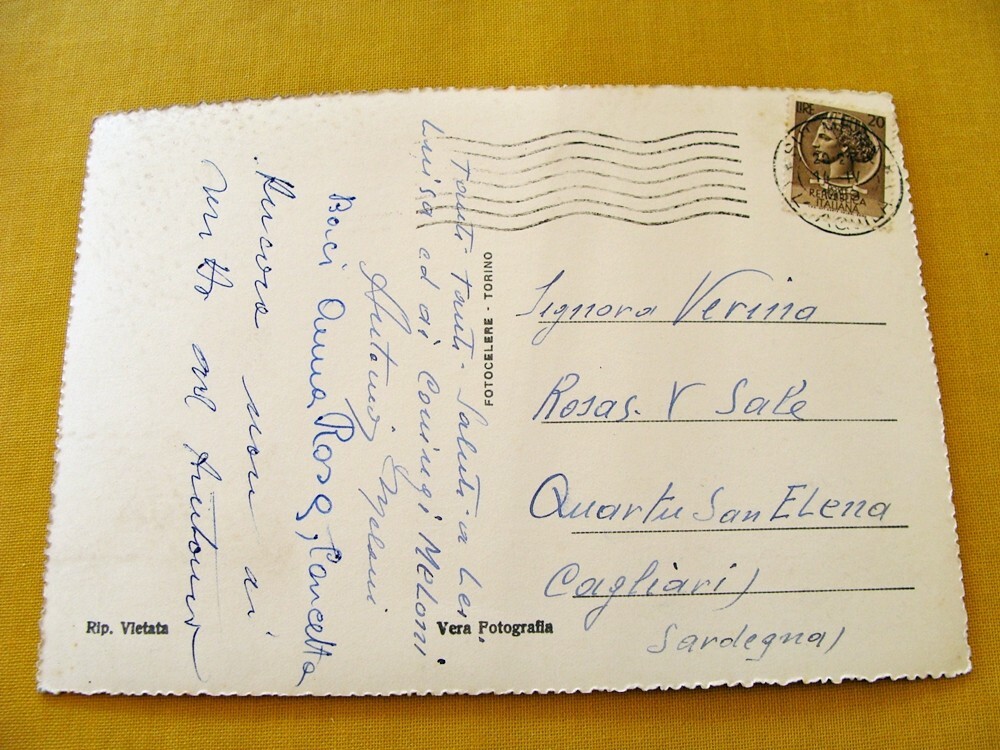 LIRE 20
REPUBBLICA
ITALIANA
Tanti-Tanti-Saluti a Lei
Luisa ed ai Coniugi Meloni
Antonio
Baci Anna Rosa, Concetta
Ancora non di
FOTOCELERE - TORINO
Signora Verina
Rosas. V Sale
Quartu San Elena
Cagliari)
Sardegna)
Rip. Vietata
Vera Fotografia